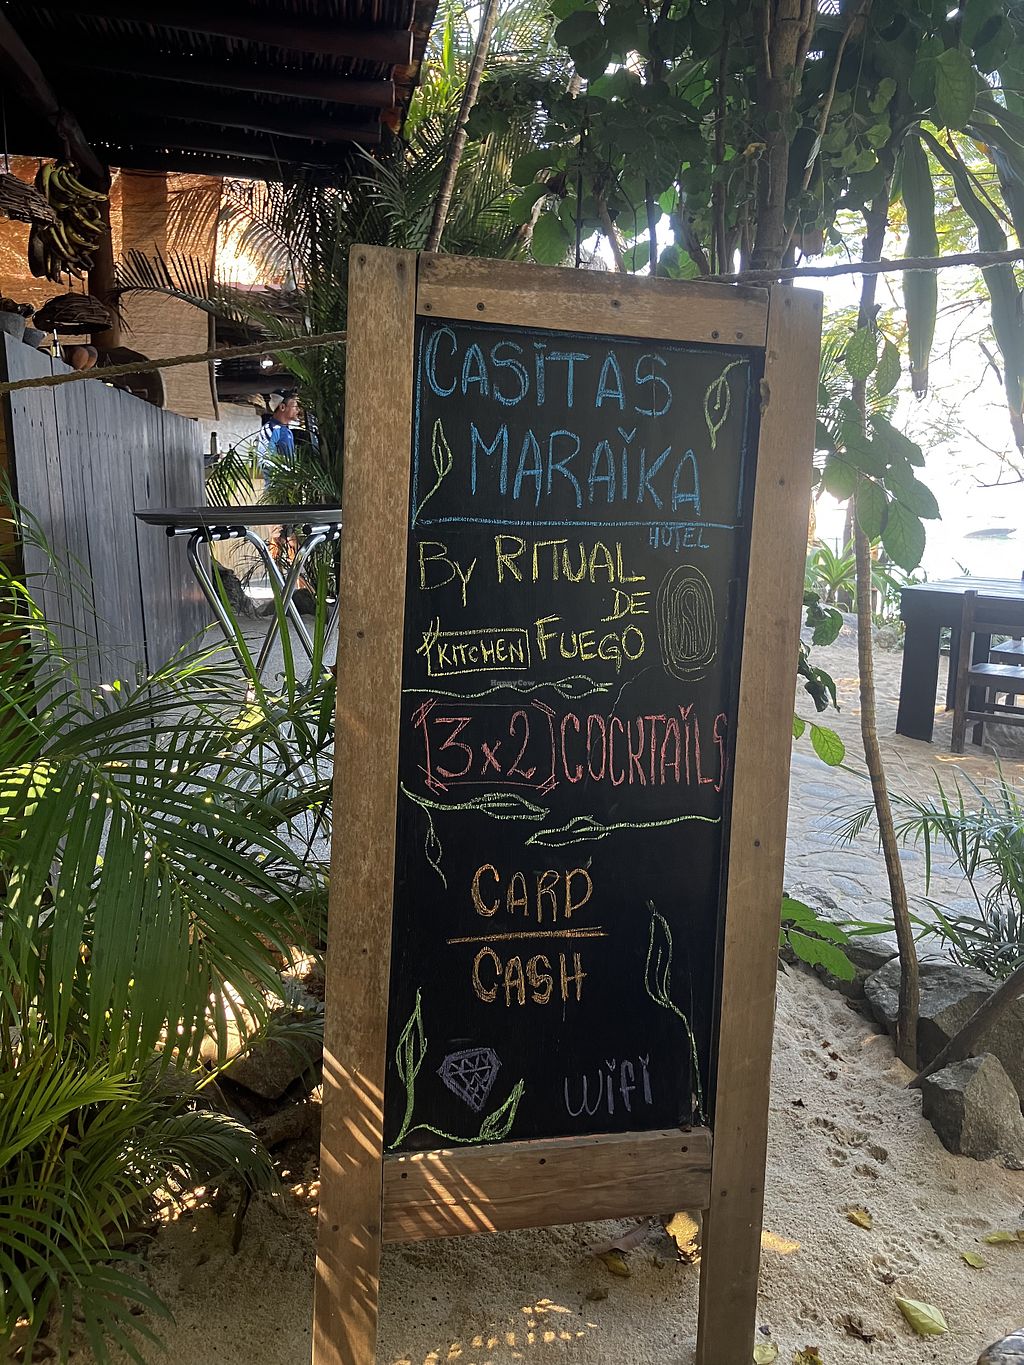 CASITAS
MARAIKA
HOTEL
By RITUAL
DE
KITCHEN FUEGO
HappyCow
3x2 COCKTAILS
CARD
CASH
WiFi